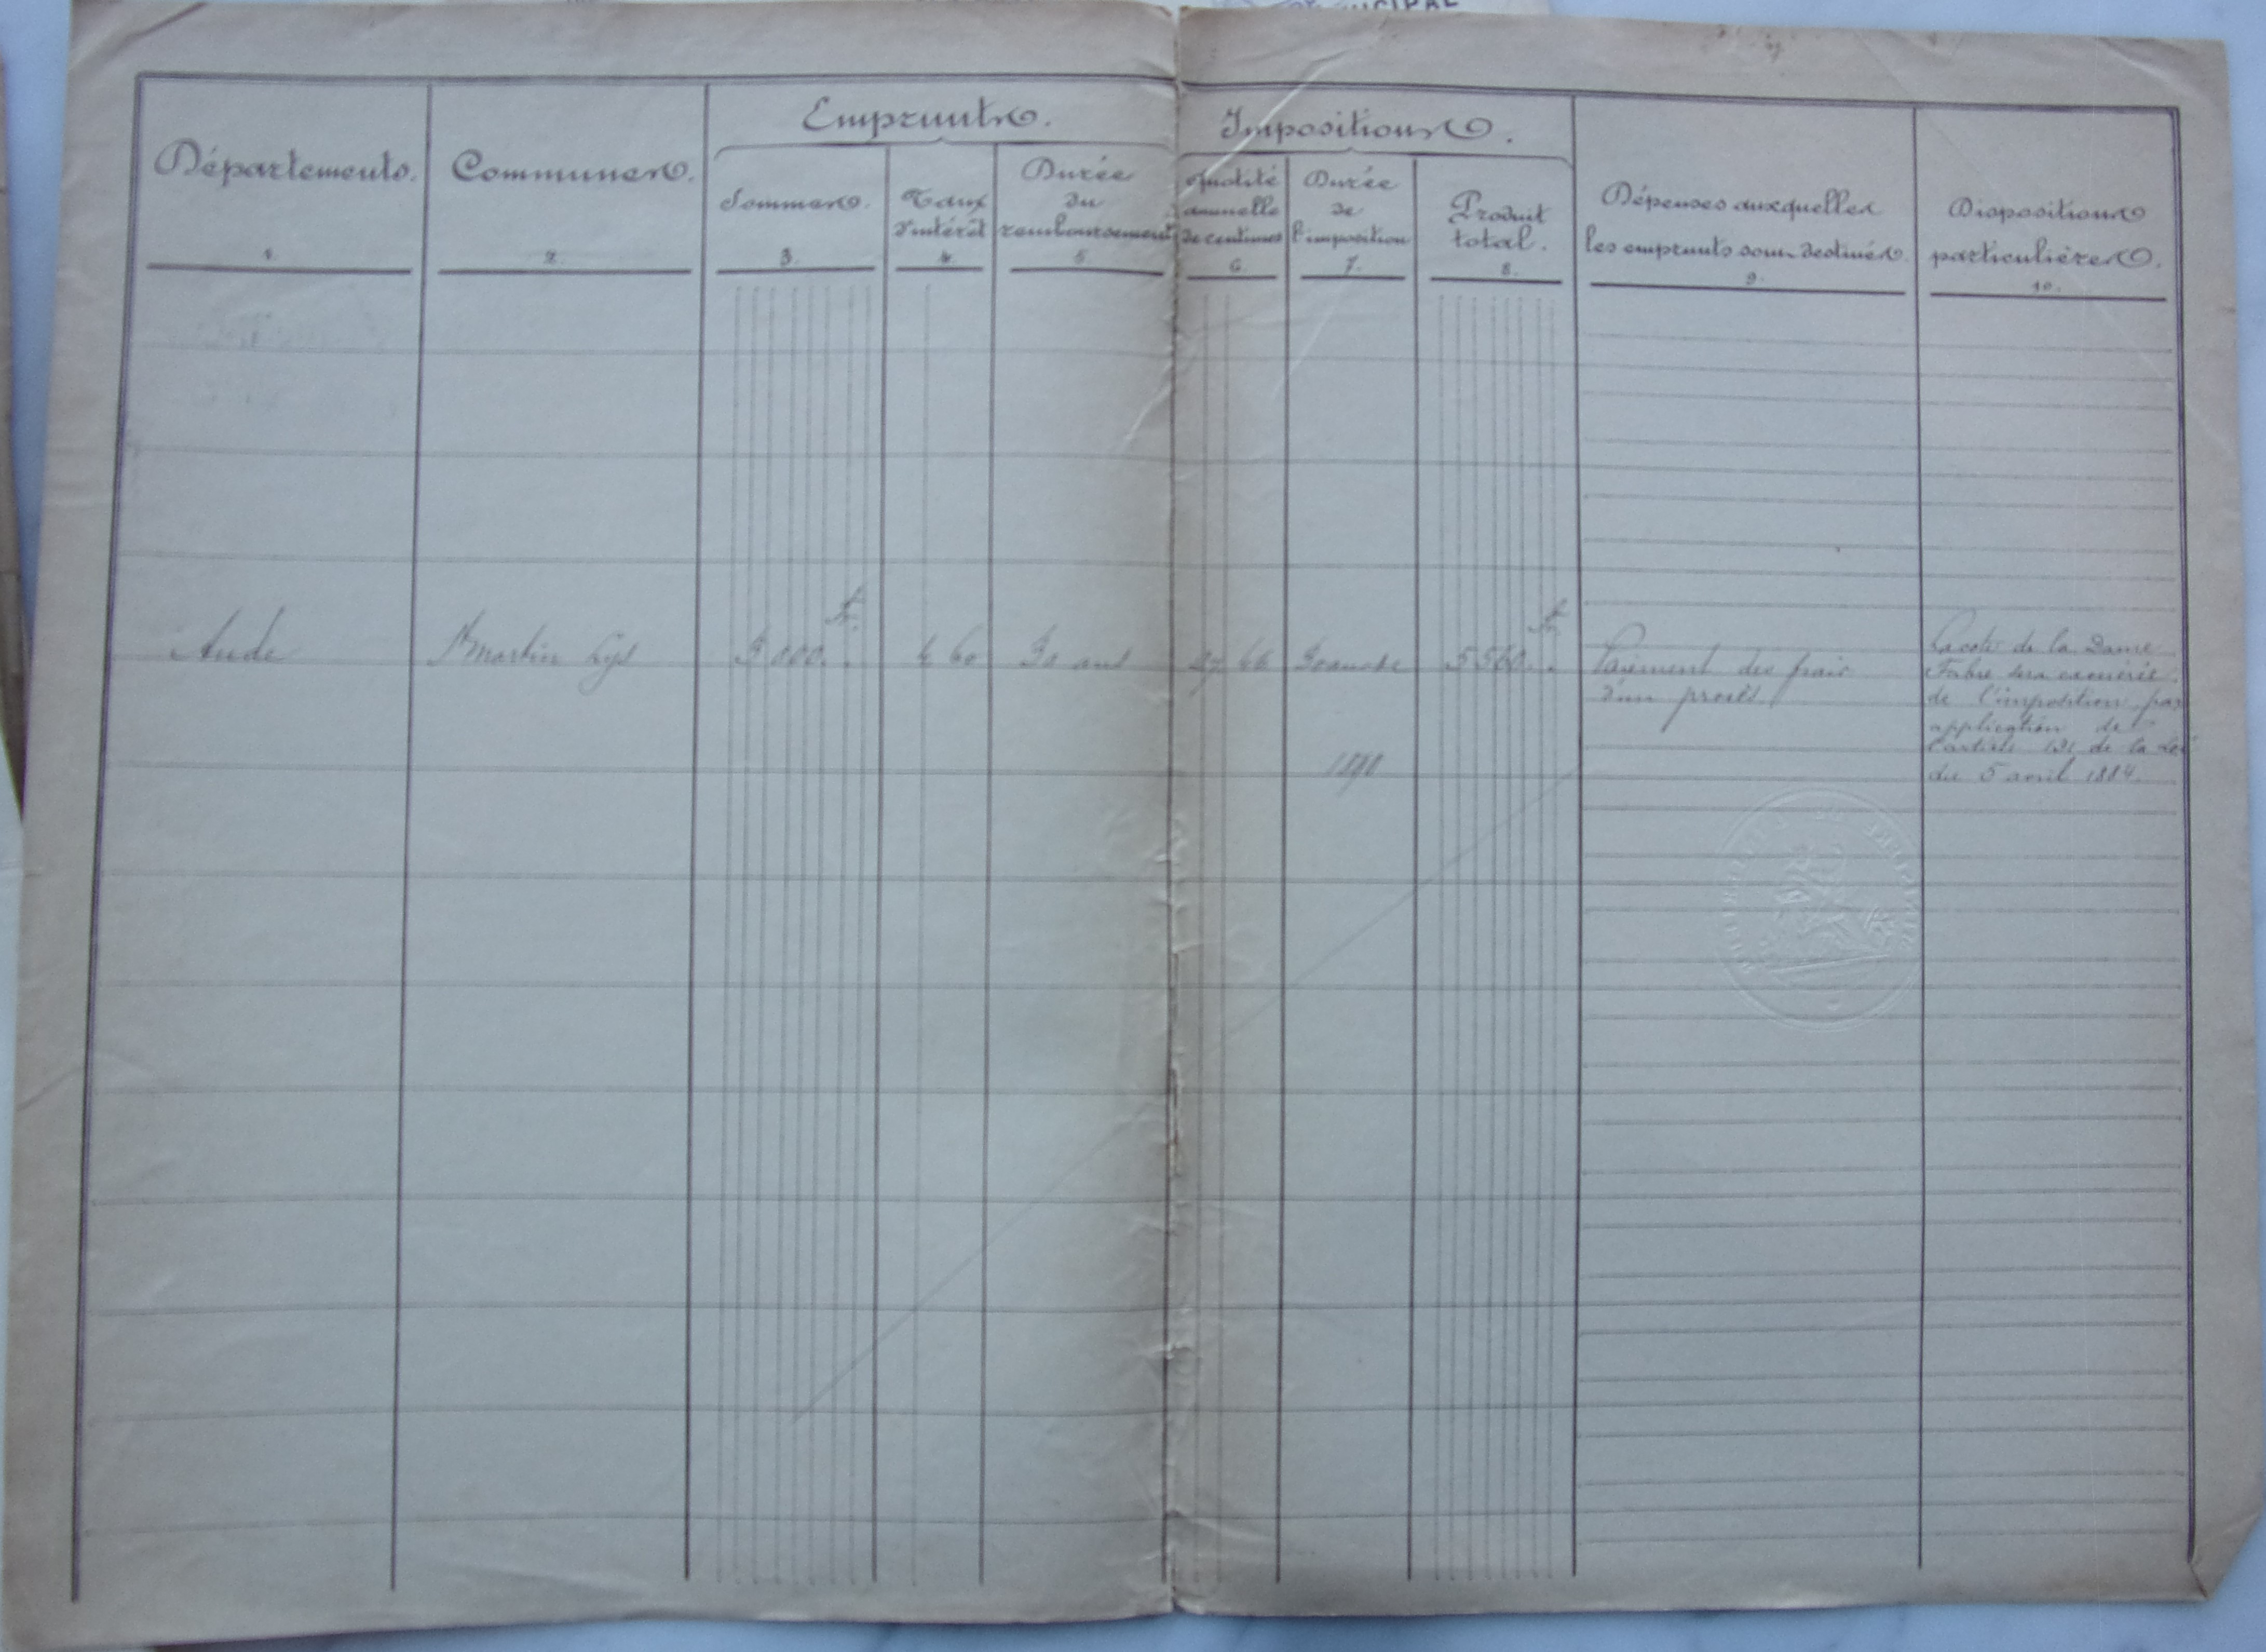 Départements.
1.
Communes.
2.
Emprunts.
Sommes.
3.
Taux
d'intérêt
4.
Durée
du
remboursement
5.
Impositions.
Quotité
annuelle
de centimes
6.
Durée
de
l'imposition
7.
Produit
total.
8.
Dépenses auxquelles
les emprunts sont destinés.
9.
Dispositions
particulières.
10.
Aude
St Martin Lys
3000. fr.
4 60
30 ans
27 66
30 ans de
5560. fr.
Paiement des frais
d'un procès.
La cote de la Dame
Fabre sera exonérée
de l'imposition par
application de
l'article 131 de la Loi
du 5 avril 1884.
1890